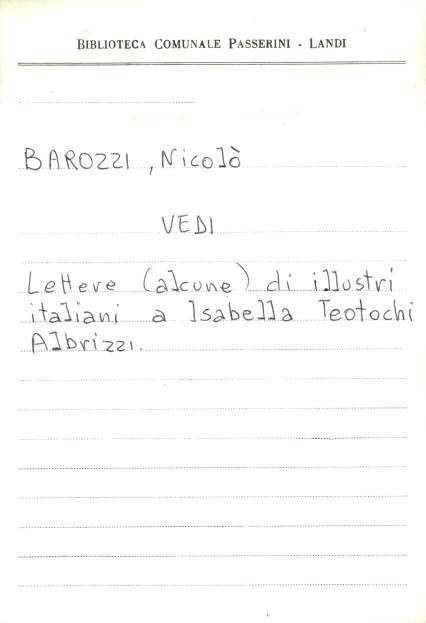 BIBLIOTECA COMUNALE PASSERINI - LANDI
BAROZZI, Nicolò
VEDI
Lettere (alcune) di illustri
italiani a Isabella Teotochi
Albrizzi.